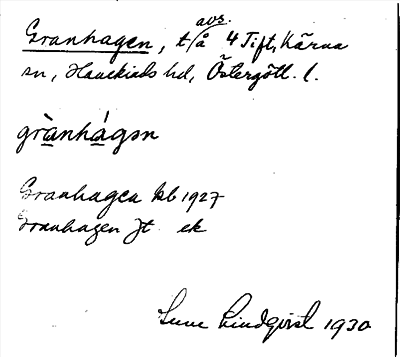 avs.
Granhagen, t/å 4 Tift, Kärna
sn, Hanekinds hd, Östergötl. l.
grànhágən
Granhagen kb 1927
Granhagen Jt ek
Sune Lindqvist 1930